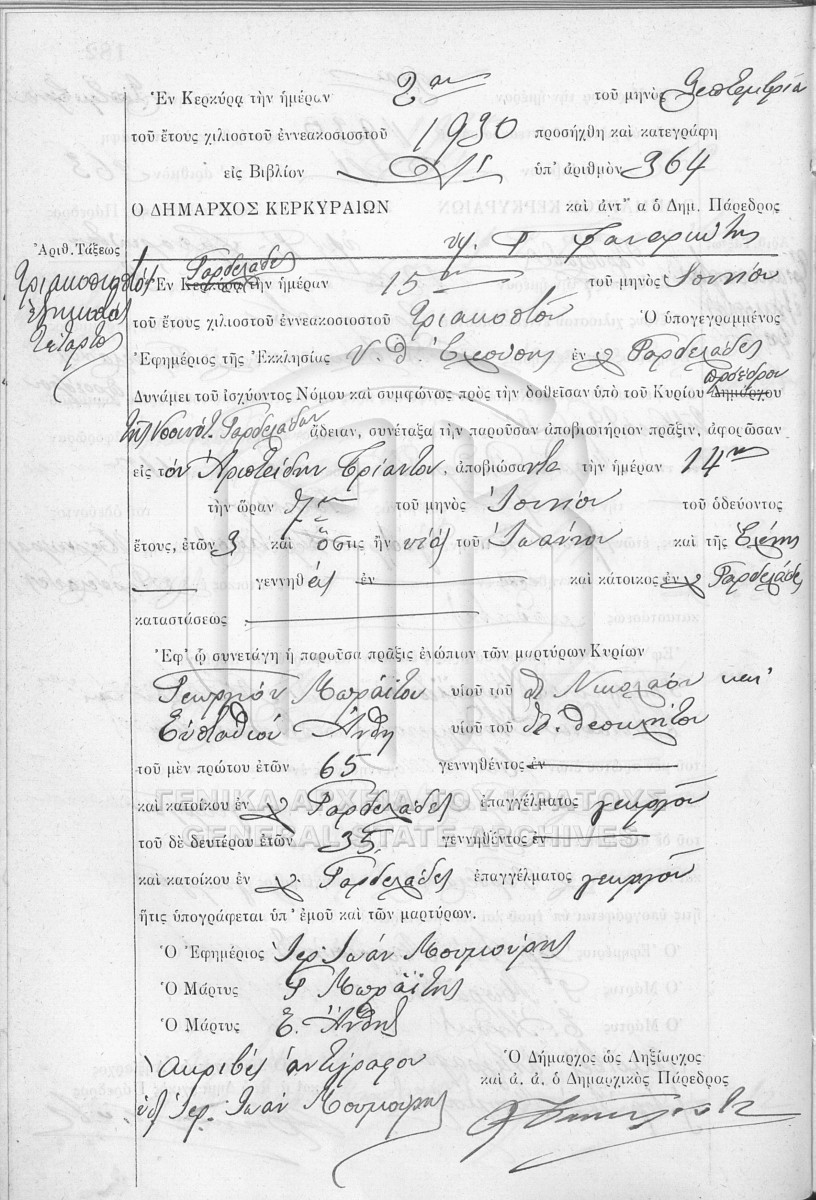 Ἐν Κερκύρᾳ τὴν ἡμέραν 2αν τοῦ μηνὸς Σεπτεμβρίου
τοῦ ἔτους χιλιοστοῦ ἐννεακοσιοστοῦ 1930 προσήχθη καὶ κατεγράφη
εἰς Βιβλίον ὑπ' ἀριθμὸν 364
Ο ΔΗΜΑΡΧΟΣ ΚΕΡΚΥΡΑΙΩΝ καὶ ἀντ' α ὁ Δημ. Πάρεδρος
Ἀριθ. Τάξεως
Τριακοσιοστὸς
ἑξηκοστὸς
τέταρτος
Ἐν Κερκύρᾳ Γαρδελάδες τὴν ἡμέραν 15ην τοῦ μηνὸς Ἰουνίου
τοῦ ἔτους χιλιοστοῦ ἐννεακοσιοστοῦ τριακοστοῦ Ὁ ὑπογεγραμμένος
Ἐφημέριος τῆς Ἐκκλησίας Υ. Θ. ἐν χ Γαρδελάδες
Δυνάμει τοῦ ἰσχύοντος Νόμου καὶ συμφώνως πρὸς τὴν δοθεῖσαν ὑπὸ τοῦ Κυρίου Δημάρχου πρόεδρου
τῆς Κοινότ. Γαρδελάδων ἄδειαν, συνέταξα τὴν παροῦσαν ἀποβιωτήριον πρᾶξιν, ἀφορῶσαν
εἰς τὸν Ἀριστείδην Τριάντου, ἀποβιώσαντα τὴν ἡμέραν 14ην
τὴν ὥραν 7μμ τοῦ μηνὸς Ἰουνίου τοῦ ὁδεύοντος
ἔτους, ἐτῶν 3 καὶ ὅστις ἦν υἱὸς τοῦ Ἰωάννου καὶ τῆς Ἑλένης
γεννηθεὶς ἐν καὶ κάτοικος ἐν χ Γαρδελάδες
καταστάσεως
Ἐφ' ᾧ συνετάγη ἡ παροῦσα πρᾶξις ἐνώπιον τῶν μαρτύρων Κυρίων
Γεωργίου Μωραΐτου υἱοῦ τοῦ Νικολάου καὶ
Εὐσταθίου Ἄνθη υἱοῦ τοῦ Θεοκλήτου
τοῦ μὲν πρώτου ἐτῶν 65 γεννηθέντος ἐν
καὶ κατοίκου ἐν χ Γαρδελάδες ἐπαγγέλματος γεωργοῦ
τοῦ δὲ δευτέρου ἐτῶν 35 γεννηθέντος ἐν
καὶ κατοίκου ἐν χ. Γαρδελάδες ἐπαγγέλματος γεωργοῦ
ἥτις ὑπογράφεται ὑπ' ἐμοῦ καὶ τῶν μαρτύρων.
Ὁ Ἐφημέριος Ἱερ. Ἰωάν Μουμούρης
Ὁ Μάρτυς Γ Μωραΐτης
Ὁ Μάρτυς Ε. Ἄνθης
Ἀκριβὲς ἀντίγραφον
Ἱερ. Ἰωάν Μουμούρης
Ὁ Δήμαρχος ὡς Ληξίαρχος
καὶ ἀ. ἀ. ὁ Δημαρχικὸς Πάρεδρος
ΓΕΝΙΚΑ ΑΡΧΕΙΑ ΤΟΥ ΚΡΑΤΟΥΣ
GENERAL STATE ARCHIVES